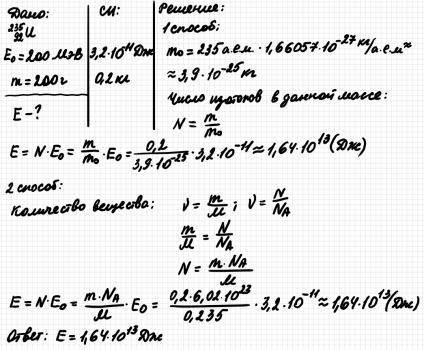 Дано:
²³⁵₉₂U
E₀ = 200 МэВ
m = 200 г
E - ?
СИ:
3,2·10⁻¹¹ Дж
0,2 кг
Решение:
1 способ:
m₀ = 235 а.е.м · 1,66057·10⁻²⁷ кг/а.е.м ≈
≈ 3,9·10⁻²⁵ кг
Число изотопов в данной массе:
N = m/m₀
E = N·E₀ = m/m₀ · E₀ = 0,2/3,9·10⁻²⁵ · 3,2·10⁻¹¹ ≈ 1,64·10¹³ (Дж)
2 способ:
Количество вещества: ν = m/M ; ν = N/N_A
m/M = N/N_A
N = m·N_A/M
E = N·E₀ = m·N_A/M · E₀ = 0,2·6,02·10²³/0,235 · 3,2·10⁻¹¹ ≈ 1,64·10¹³ (Дж)
Ответ: E = 1,64·10¹³ Дж